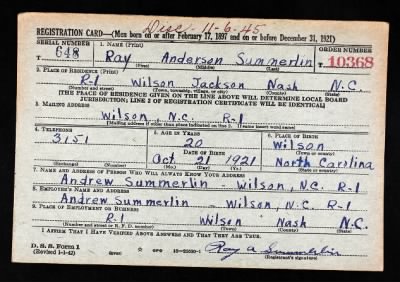 Disc. 11-6-45
REGISTRATION CARD—(Men born on or after February 17, 1897 and on or before December 31, 1921)
SERIAL NUMBER 1. NAME (Print) ORDER NUMBER
T 648 Ray Anderson Summerlin T 10368
(First) (Middle) (Last)
2. PLACE OF RESIDENCE (Print)
R-1 Wilson Jackson Nash N.C.
(Number and street) (Town, township, village, or city) (County) (State)
[THE PLACE OF RESIDENCE GIVEN ON THE LINE ABOVE WILL DETERMINE LOCAL BOARD
JURISDICTION; LINE 2 OF REGISTRATION CERTIFICATE WILL BE IDENTICAL]
3. MAILING ADDRESS
Wilson, N.C. R-1
[Mailing address if other than place indicated on line 2. If same insert word same]
4. TELEPHONE 5. AGE IN YEARS 6. PLACE OF BIRTH
3151 20 Wilson
DATE OF BIRTH (Town or county)
Oct 21 1921 North Carolina
(Exchange) (Number) (Mo.) (Day) (Yr.) (State or country)
7. NAME AND ADDRESS OF PERSON WHO WILL ALWAYS KNOW YOUR ADDRESS
Andrew Summerlin - Wilson, N.C. R-1
8. EMPLOYER'S NAME AND ADDRESS
Andrew Summerlin - Wilson, N.C. R-1
9. PLACE OF EMPLOYMENT OR BUSINESS
R-1 Wilson Nash N.C.
(Number and street or R. F. D. number) (Town) (County) (State)
I AFFIRM THAT I HAVE VERIFIED ABOVE ANSWERS AND THAT THEY ARE TRUE.
D. S. S. Form 1
(Revised 1-1-42) (over) GPO 16—21630-1 Ray A Summerlin
(Registrant's signature)